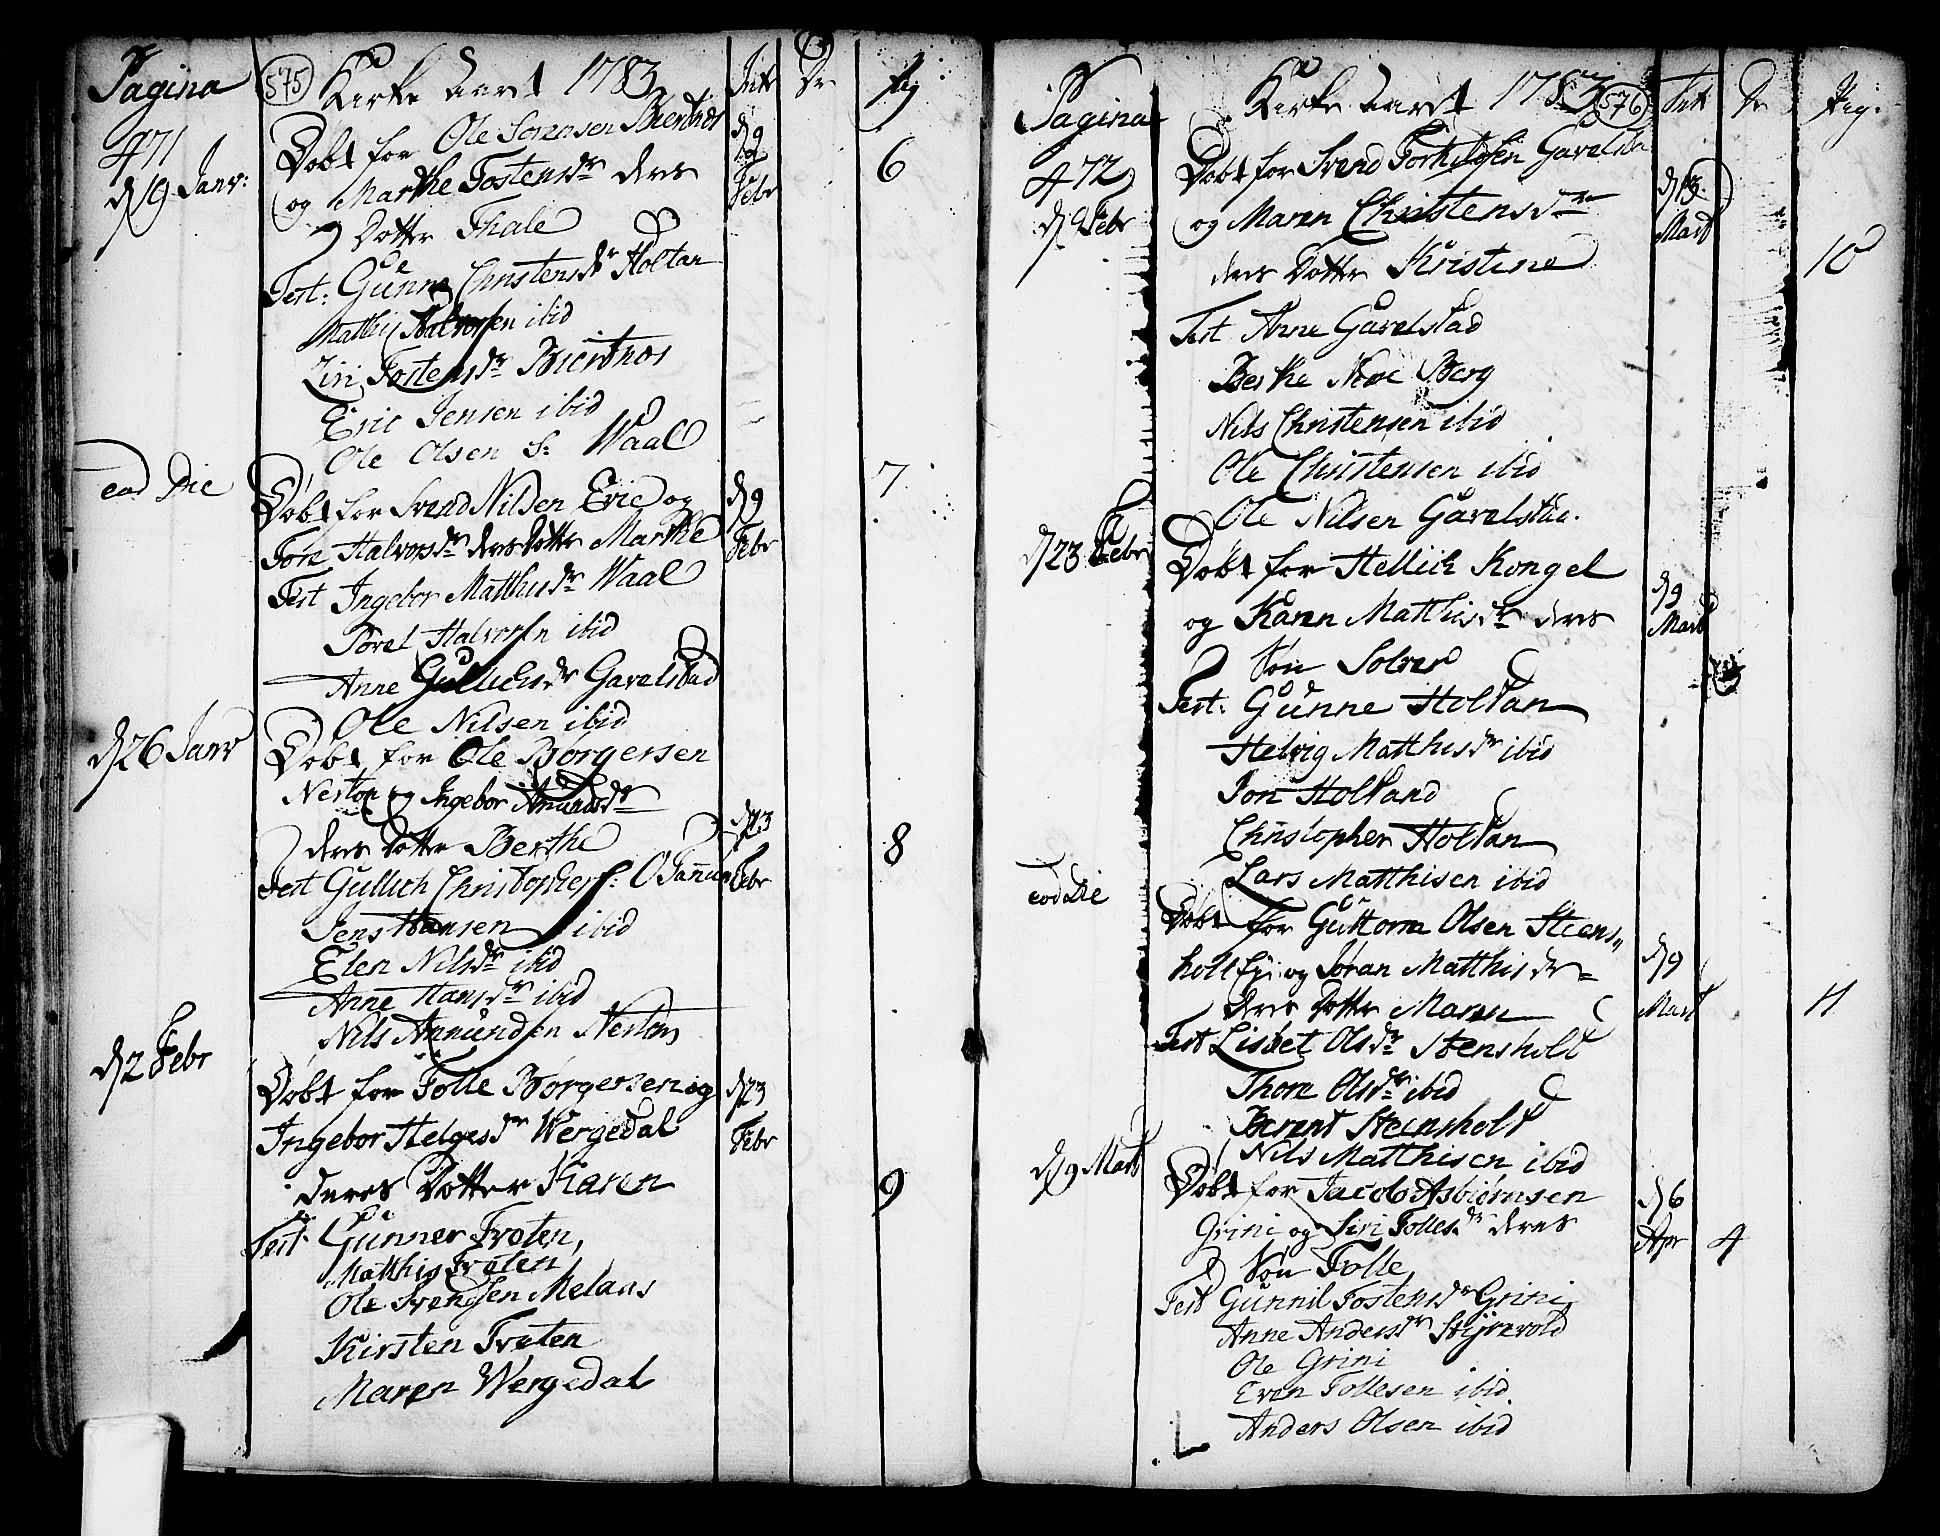 Pagina 575 Kirke Aaret 1783 Intr Dr Pig
471
d 9 Janv: Døbt for Ole Sørensen Biertnes d 9 Febr 6
og Marthe Tostensdr deres
Dotter Thale
Test: Gunne Christensdr Holtan
Mathis Halvorsen ibid
Ziri Tostensdr Biertnes
Eric Jensen ibid
Ole Olsen S: Waal
eod Die Døbt for Svend Nilsen Erie og d 9 7
Tore Halvorsdr deres Dotter Marthe Febr
Test Ingebor Matthisdr Waal
Torel Halvorsen ibid
Anne Gullichsdr Gavelstad
Ole Nilsen ibid
d 26 Janv Døbt for Ole Børgersen
Neston og Ingebor Amundsdr
deres Dotter Berthe d 23 8
Test Gullich Christophers: Febr
Jens Hansen ibid
Elen Nilsdr ibid
Anne Hansdr ibid
Nils Amundsen Neston
d 2 Febr
Døbt for Tolle Børgersen og d 23
Ingebor Helgesdr Wergedal Febr
deres Dotter Karen 9
Test: Gunner Traten
Matthis Traten
Ole Svendsen Melaas
Kirsten Traten
Maren Wergedal
Pagina Kirke Aaret 1783 576 Intr Dr Pig.
472 Døbt for Svend Torkildsen Gavelsta
d 9 Febr og Maren Christensdr d 13. Mart
deres Dotter Kristine 10
Test Anne Gavelstad
Berthe Berg
Nils Christensen ibid
Ole Christensen ibid
Ole Nilsen Gavelstad.
d 23 Febr Døbt for Hellich Kongel d 9
og Karen Matthisdr deres Mart
Søn Solver 3
Test: Gunne Holtan
Helvig Matthisdr ibid
Jon Holtand
Christopher Holtan
Lars Matthisen ibid
eod Die
Døbt for Guttorm Olsen Steens„
holt Eje og Søran Matthisdr d 9
deres Dotter Maren Mart 11
Test Lisbet Olsdr Stensholt
Thore Olsdr ibid
Berent Steensholt
Nils Matthisen ibid
d 9 Mart Døbt for Jacob Asbiørnsen d 6
Grini og Siri Tollesdr deres Apr 4
Søn Tolle
Test Gunnil Tostensdr Grini
Anne Andersdr Styrevold
Ole Grini
Even Tollesen ibid
Anders Olsen ibid